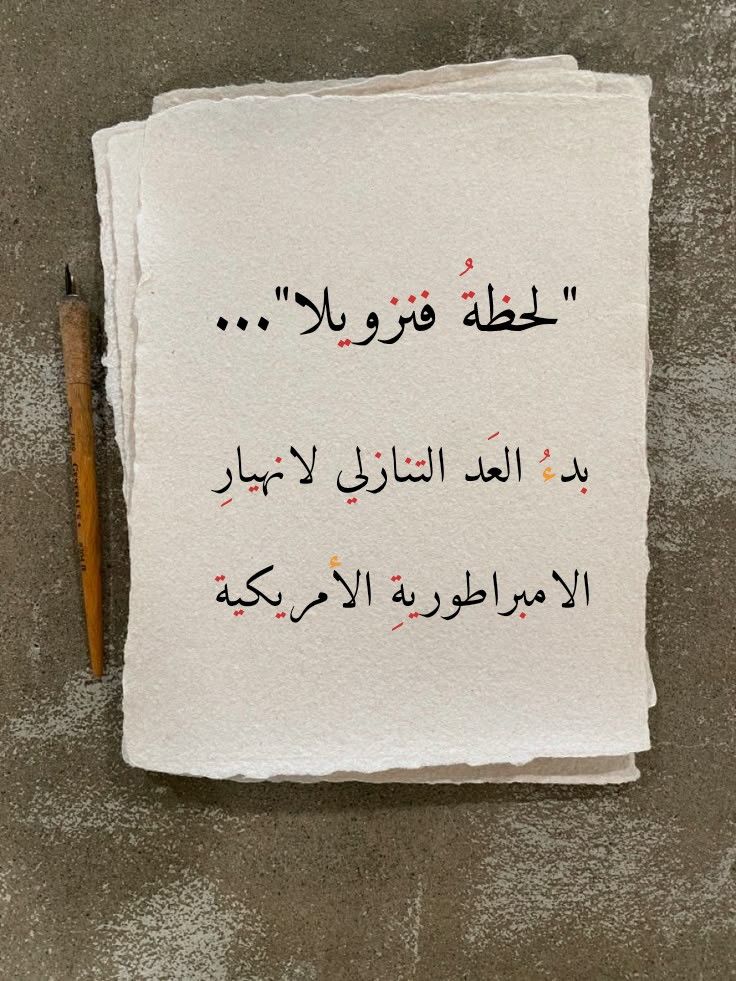 "لحظةُ فنزويلا"...
بدءُ العَد التنازلي لانهيارِ
الامبراطوريةِ الأمريكية